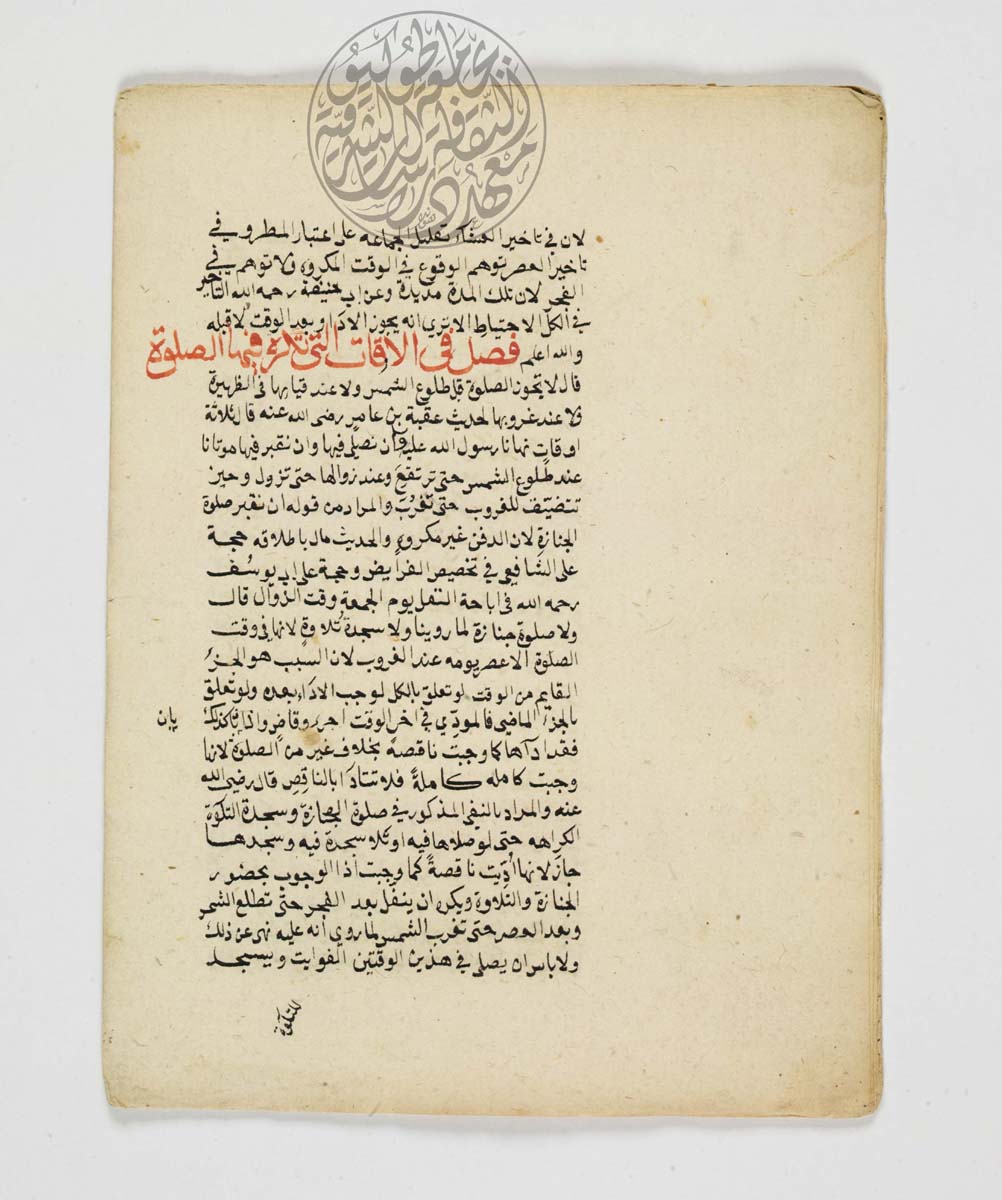 لان في تاخير العشاء تقليل الجماعه على اعتبار المطر وفي
تاخير العصر توهم الوقوع في الوقت المكروه ولا توهم في
الفجر لان تلك المدة مديدة وعن ابي حنيفة رحمه الله التاخير
في الكل الاحتياط الا تري انه يجوز الادا بعد الوقت لا قبله
والله اعلم فصل في الاوقات التي تكره فيها الصلوة
قال لا تجوز الصلوة قبل طلوع الشمس ولا عند قيامها في الظهيرة
ولا عند غروبها لحديث عقبة بن عامر رضى الله عنه قال ثلاثة
اوقات نهانا رسول الله عليه وان نصلي فيها وان نقبر فيها موتانا
عند طلوع الشمس حتى ترتفع وعند زوالها حتى تزول وحين
تتضيف للغروب حتى تغرب والمراد من قوله ان نقبر صلوة
الجنازة لان الدفن غير مكروه والحديث باطلاقه حجة
على الشافعي في تخصيص الفرايض وحجة على ابي يوسف
رحمه الله في اباحة النفل يوم الجمعة وقت الزوال قال
ولا صلوة جنازة لما روينا ولا سجدة تلاوة لانها في وقت
الصلوة الا عصر يومه عند الغروب لان السبب هو الجزء
القايم من الوقت لو تعلق بالكل لوجب الاداء بعده ولو تعلق
بالجزء الماضي فالمودي في اخر الوقت قاض واذا كذلك
يان
فقد اداها كما وجبت ناقصة بخلاف غيره من الصلوة لانها
وجبت كامله كاملة فلا تتادا بالناقص قال رضي الله
عنه والمراد بالنفي المذكور في صلوة الجنازة وسجدة التلاوة
الكراهه حتى لو صلاها فيه او تلا سجدة فيه وسجدها
جاز لانها أديت ناقصة كما وجبت اذا الوجوب بحضور
الجنازة والتلاوة ويكره ان يتنفل بعد الفجر حتى تطلع الشمس
وبعد العصر حتى تغرب الشمس لما روي أنه عليه نهى عن ذلك
ولا باس ان يصلي في هذين الوقتين الفوايت ويسجد
للتلاوة